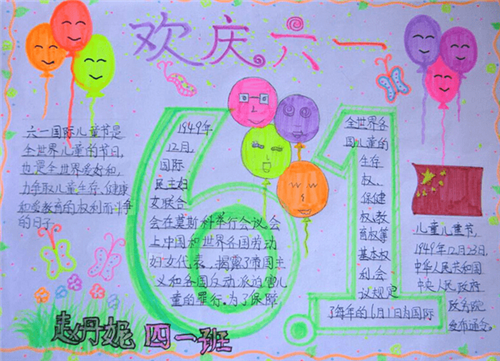 欢庆六一
六一国际儿童节是
全世界儿童的节日,
也是全世界爱好和
力争取儿童生存、健康
和受教育的权利而斗争
的日子。
1949年
12月,
国际
民主妇
女联合
会在莫斯科举行会议会
上中国和世界各国劳动
妇女代表、揭露了帝国主
义和各国反动派迫害儿
童的罪行,为了保障
全世界各
国儿童的
生存
权、
保健
权、教
育权等
基本权
利,会
议规定
了每年的6月1日为国际
61
儿童儿童节,
1949年12月23日,
中华人民共和国
中央人民政府
政务院
发布通令
赵丹妮 四一班